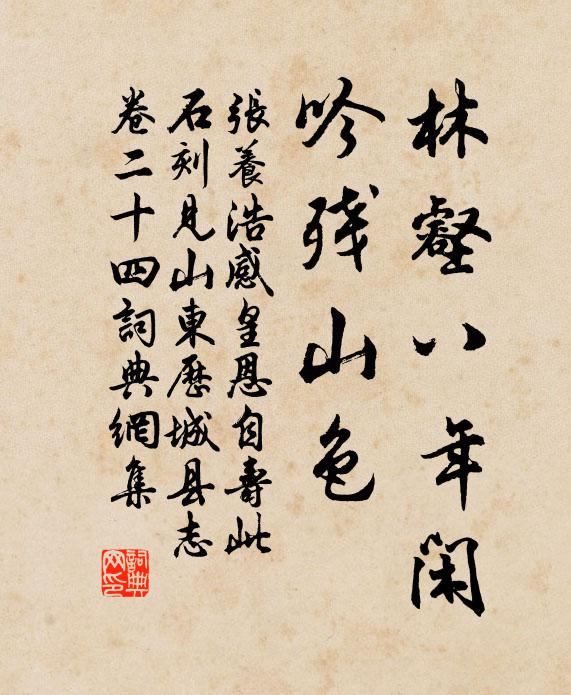 林壑八年闲
吟残山色
張養浩感皇恩自壽此
石刻見山東歷城县志
卷二十四詞典網集
詞典网印